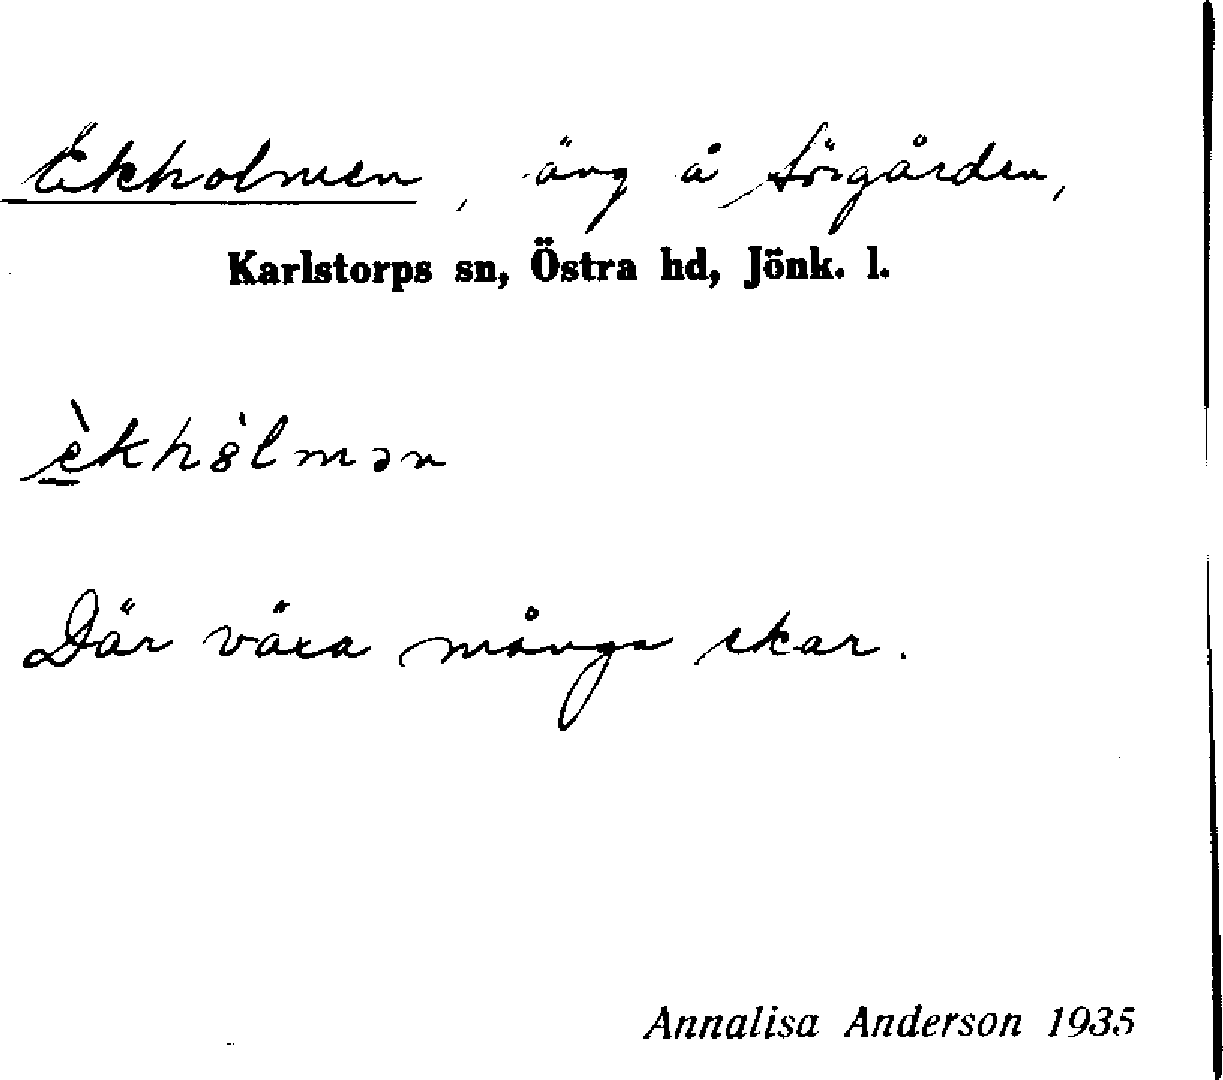 Ekholmen, äng å Sörgården,
Karlstorps sn, Östra hd, Jönk. l.
èkhòlmən
Där växa många ekar.
Annalisa Anderson 1935